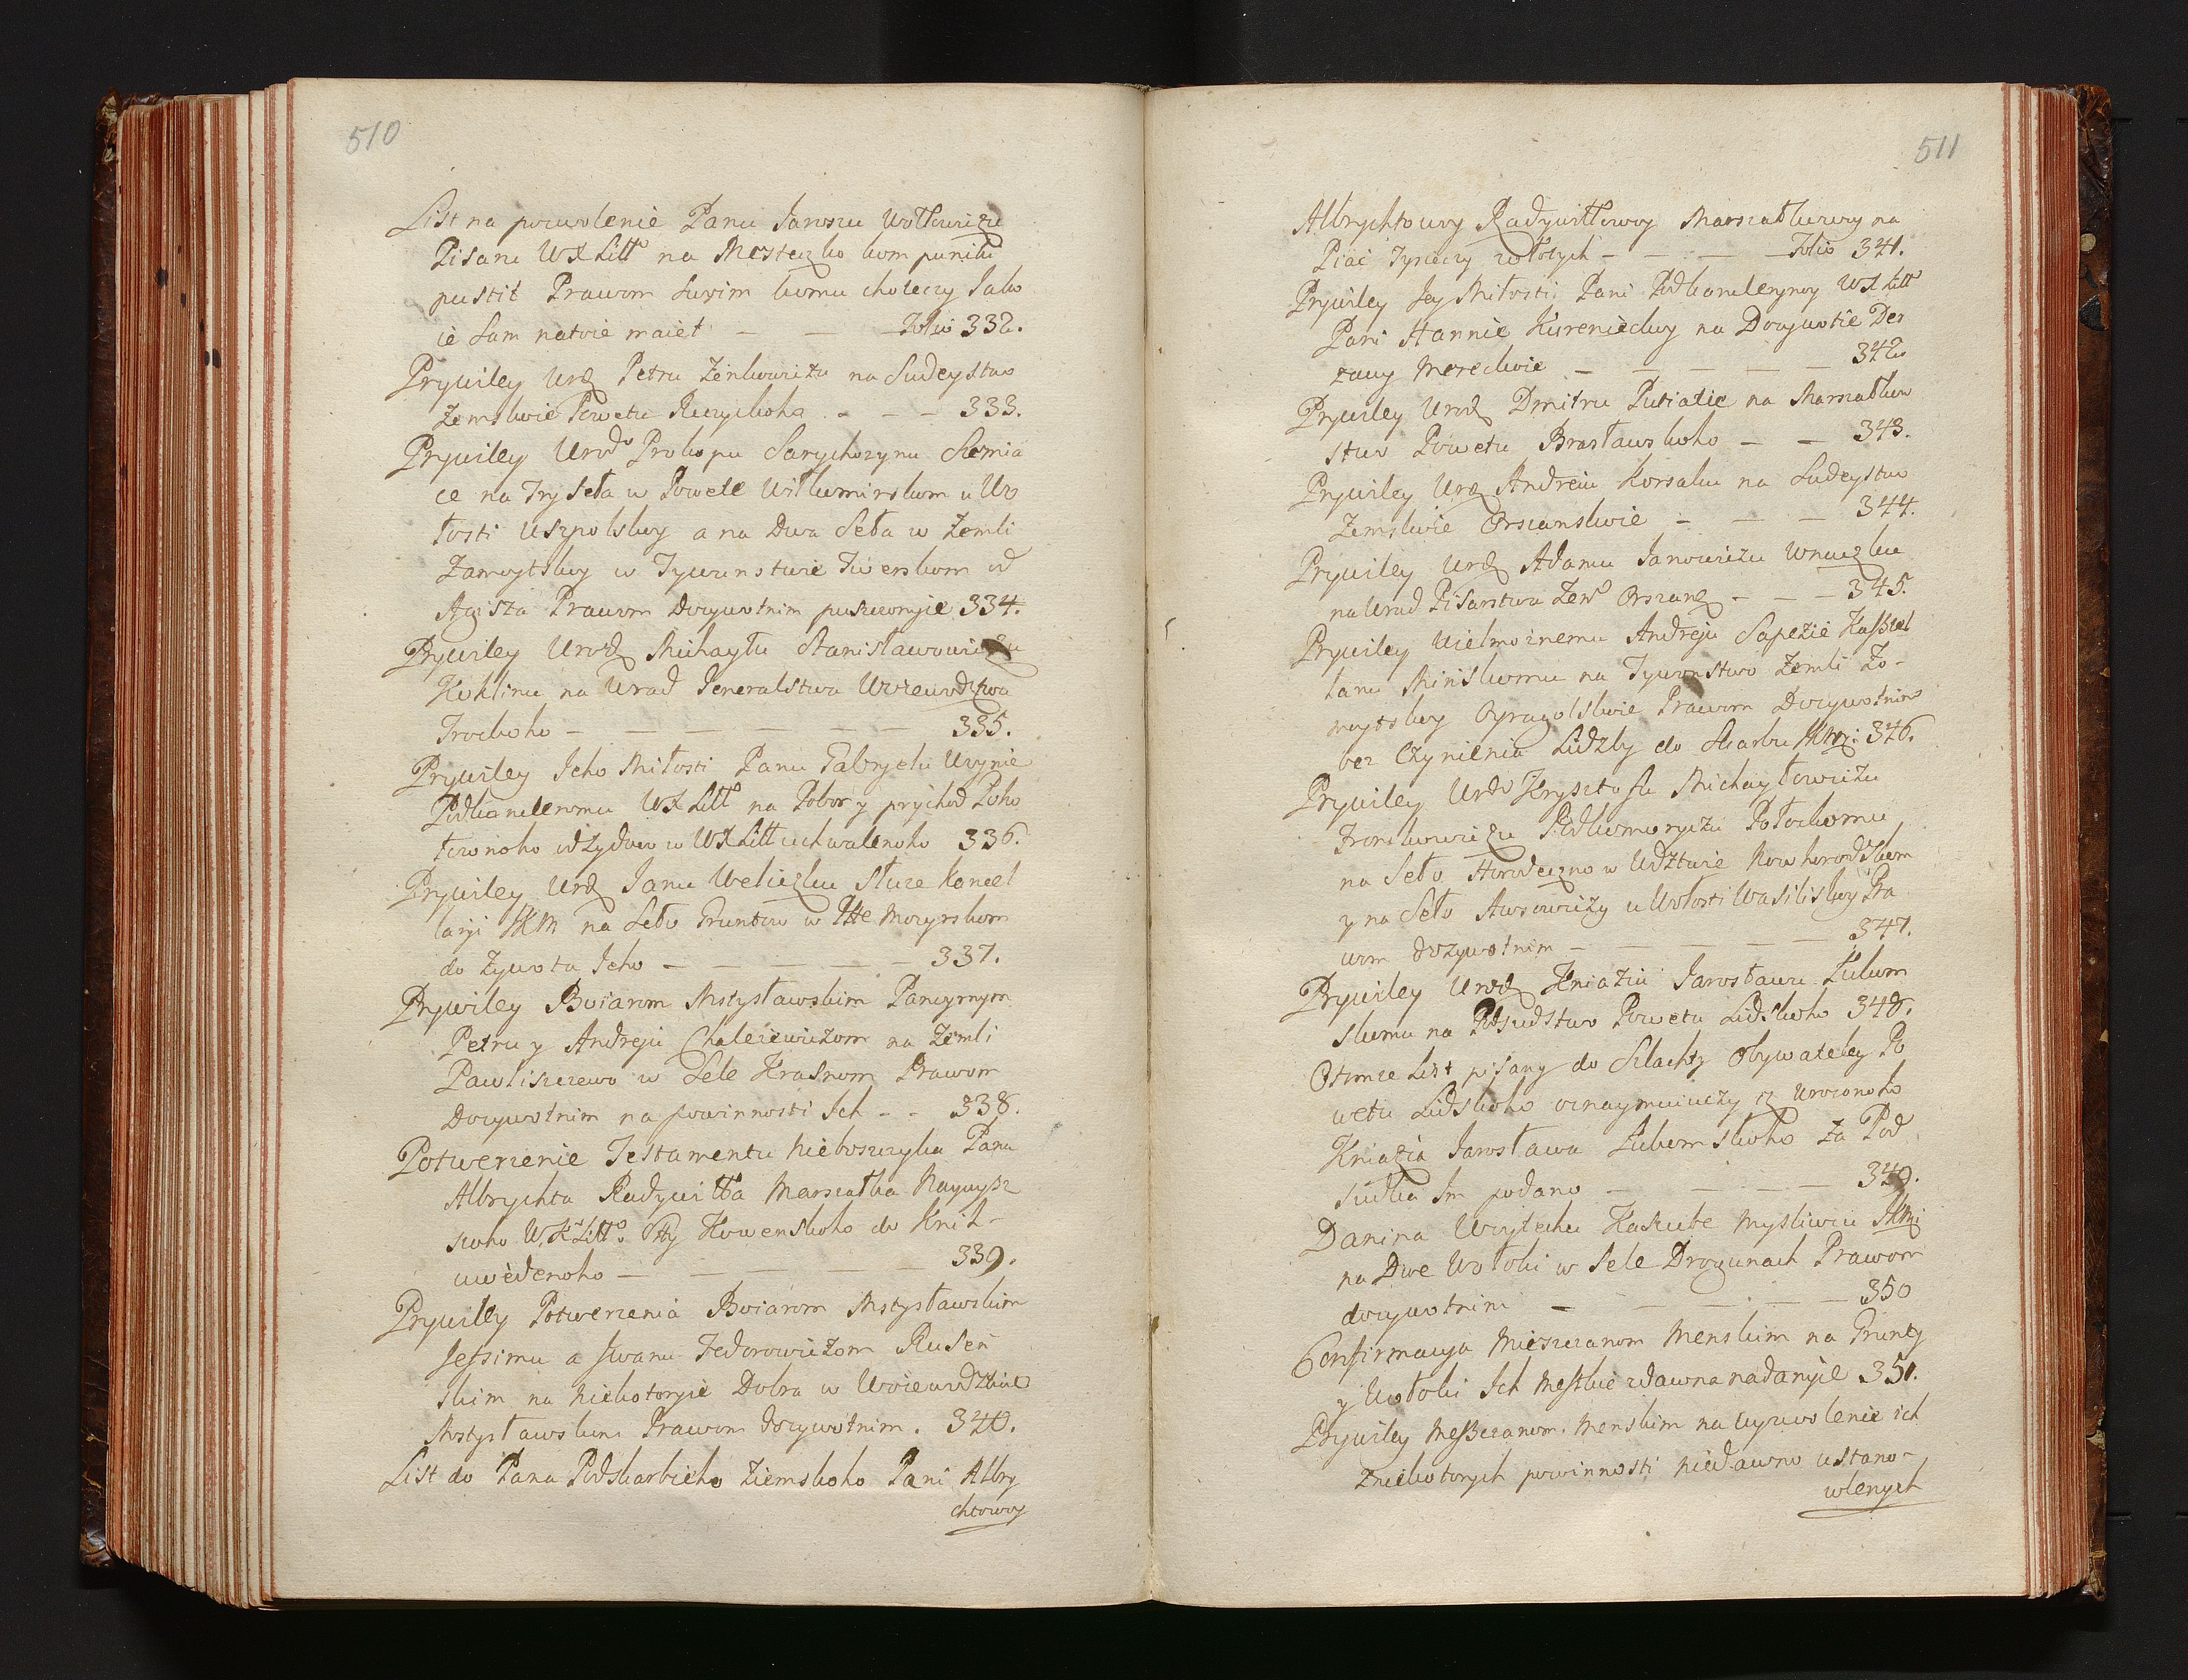 510
List na pozwolenie Panu Jaroszu Wołłowiczu
Pisaru WX Litt° na Mesteczko kom puniku
pustit Prawom swoim komu choteczy Jako
ie sam natoie maiet — — Folio 332.
Prywiley Urodz Petru Zenkowiczu na Sudeystwo
Zemskoie Powetu Reczyckoho - - - 333.
Prywiley Urod° Prokopu Sarychozynu Semia
ce na Try Seła w Powete Wiłkumirskom u Wo
łosti Uszpolskoy a na Dwa Seła w Zemli
Zamoytskoy w Tywunstwie Twerskom od
Agista Prawom Dozywotnim puszczonyie 334.
Prywiley Urodz Michayłu Stanisławowiczu
Koklinu na Urad Jeneralstwa Woiewodztwa
Trockoho — — — — — — 335.
Prywiley Jeho Miłosti Panu Gabryelu Woynie
Podkancleromu WX Litt° na Pobor y prychod Poho
łownoho od Zydow w WX Litt uchwalenoho 336.
Prywiley Urodz Janu Weliczku Słuze Kancel
laryi JKM na Seło Gruntow w Ptte Mozyrskom
do Zywota Jeho — — — — — 337.
Prywiley Boiarom Mstysławskim Pancyrnym
Petru y Andreju Chaleiewiczom na Zemli
Pawliszczewo w Sele Krasnom Prawom
Dozywotnim na powinnosti Ich - - 338.
Potwerzenie Testamentu Nieboszczyka Pana
Albrychta Radywiłła Marszałka Naywysz
szoho W. X Litt° Sty Kowenskoho do Knih-
uwedenoho — — — — — 339.
Prywiley Potwerzenia Boiarom Mstysławskim
Jessimu a Iwanu Fedorowiczom Rusen
skim na niekotoryie Dobra w Woiewodztwie
Mstysławskim Prawom dozywotnim. 340.
List do Pana Podskarbieho Ziemskoho Pani Albry
chtowoy
511
Albrychtowoy Radywiłłowoy Marszałkowoy na
Piac Tysiaczy zołotych — — — Folio 341.
Prywiley Jey Miłosti Pani Podkancleryney WX Litt°
Pani Hannie Kurenieckoy na Dozywotie Der
zawy Mereckoie — — — — — 342.
Prywiley Urodz Dmitru Putiatie na Marszałkow
stwo Powetu Brasławskoho — — 343.
Prywiley Urodz Andreiu Korsaku na Sudeystwo
Zemskoie Orszanskoie — — — 344.
Prywiley Urodz Adamu Janowiczu Wnuczku
na Urad Pisarstwa Zem° Orszans — — — 345.
Prywiley Wielmoznemu Andreju Sapezie Kasztel
lanu Minskomu na Tywonstwo Zemli Zo-
moytskoy Oyragolskoie Prawom Dozywotnim
bez Czynienia Lidzby do Skarbu JKMsci: 346.
Prywiley Urod° Krysztofu Michayłowiczu
Fronckowiczu Podkomoryczu Połockomu
na Seło Horodeczno w Wdztwie Nowhorodskom
y na Seło Awsowiczy u Wołosti Wasiliskoy Pra
wom dozywotnim — — — — — 347.
Prywiley Urodz Kniaziu Jarosławu Łukom
skomu na Podsudstwo Powetu Lidskoho 348.
Otomże List pisany do Szlachty Obywateley Po
wetu Lidskoho oznaymuiuczy iz Urozonoho
Kniazia Jarosława Łukomskoho za Pod
sudka Im podano — — — — 349.
Danina Woytechu Kaszube Mysliwcu JKMsci
na Dwe Wołoki w Sele Drozunach Prawom
dozywotnim — — — — — 350
Confirmacya Mieszczanom Menskim na Grunty
y Wołoki Ich Mestkie zdawna nadanyie 351.
Prywiley Meszczanom Menskim na uyzwolenie ich
z niekotorych powinnosti niedawno ustano-
wlenych